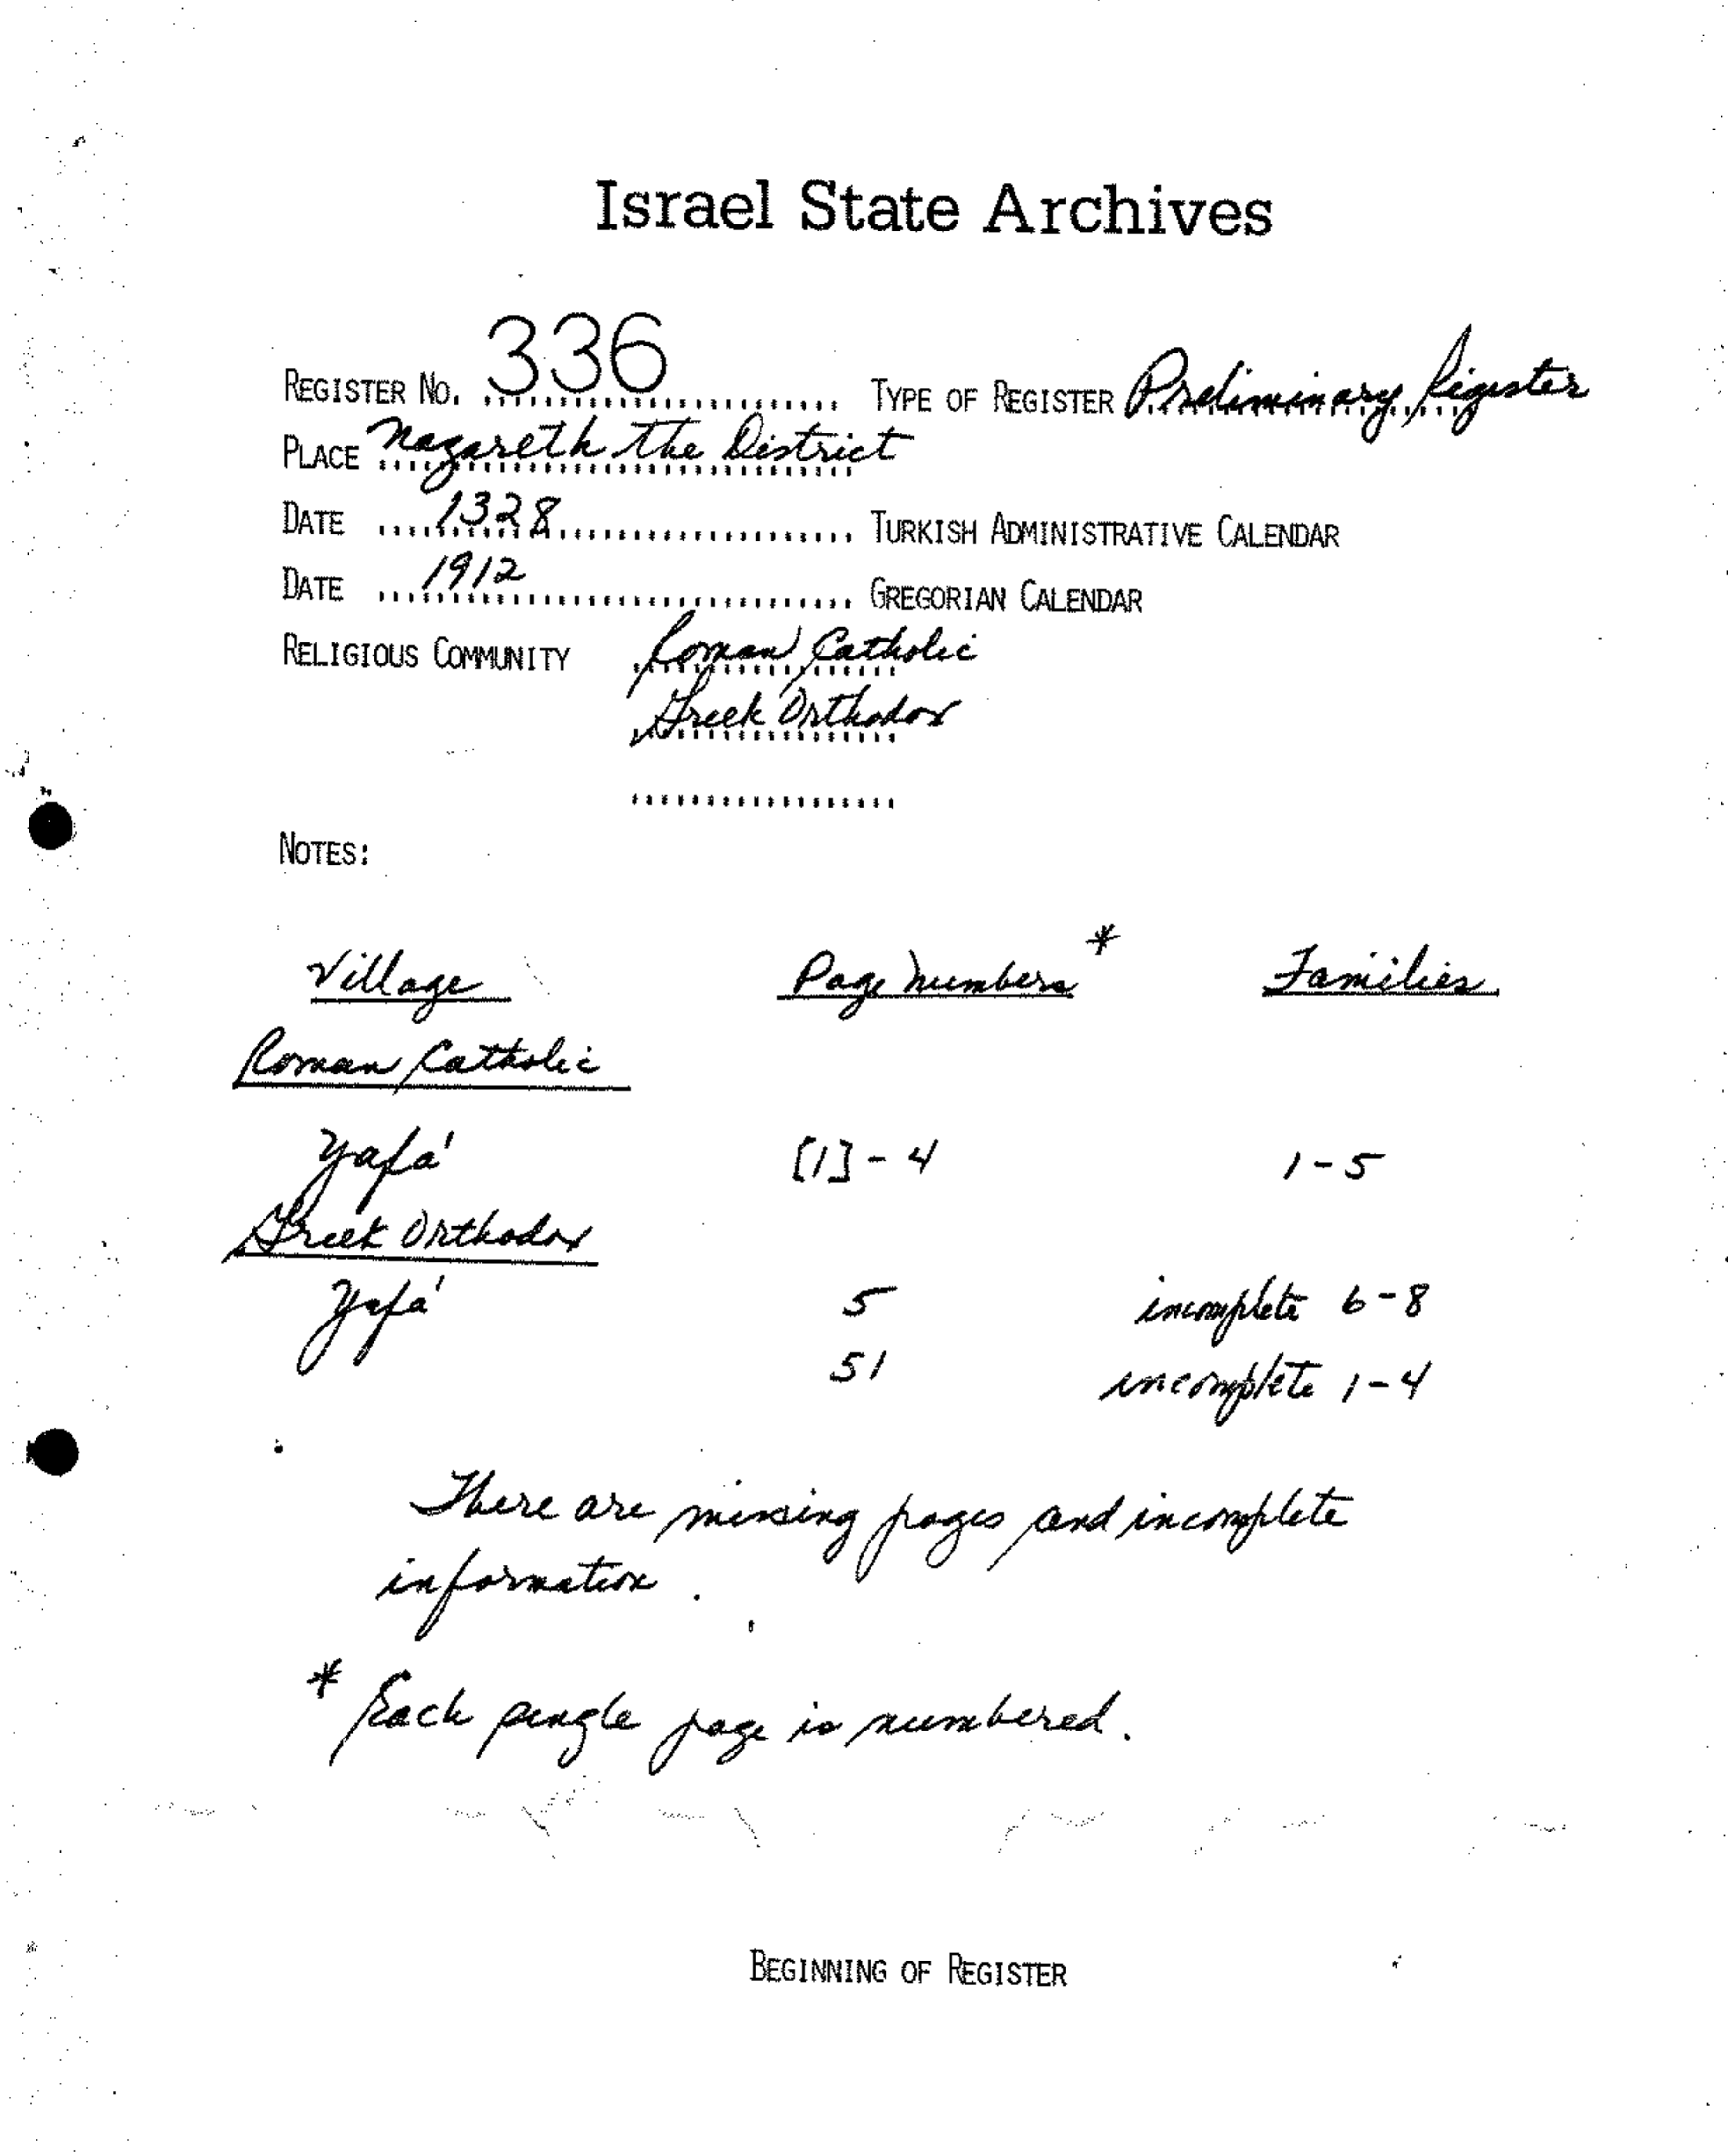 Israel State Archives
REGISTER NO. 336 TYPE OF REGISTER Preliminary Register
PLACE Nazareth the District
DATE 1328 TURKISH ADMINISTRATIVE CALENDAR
DATE 1912 GREGORIAN CALENDAR
RELIGIOUS COMMUNITY Roman Catholic
Greek Orthodox
NOTES:
Village Page Numbers * Families
Roman Catholic
Yafa' [1] - 4 1 - 5
Greek Orthodox
Yafa' 5 incomplete 6 - 8
51 incomplete 1 - 4
There are missing pages and incomplete
information.
* Each single page is numbered.
BEGINNING OF REGISTER